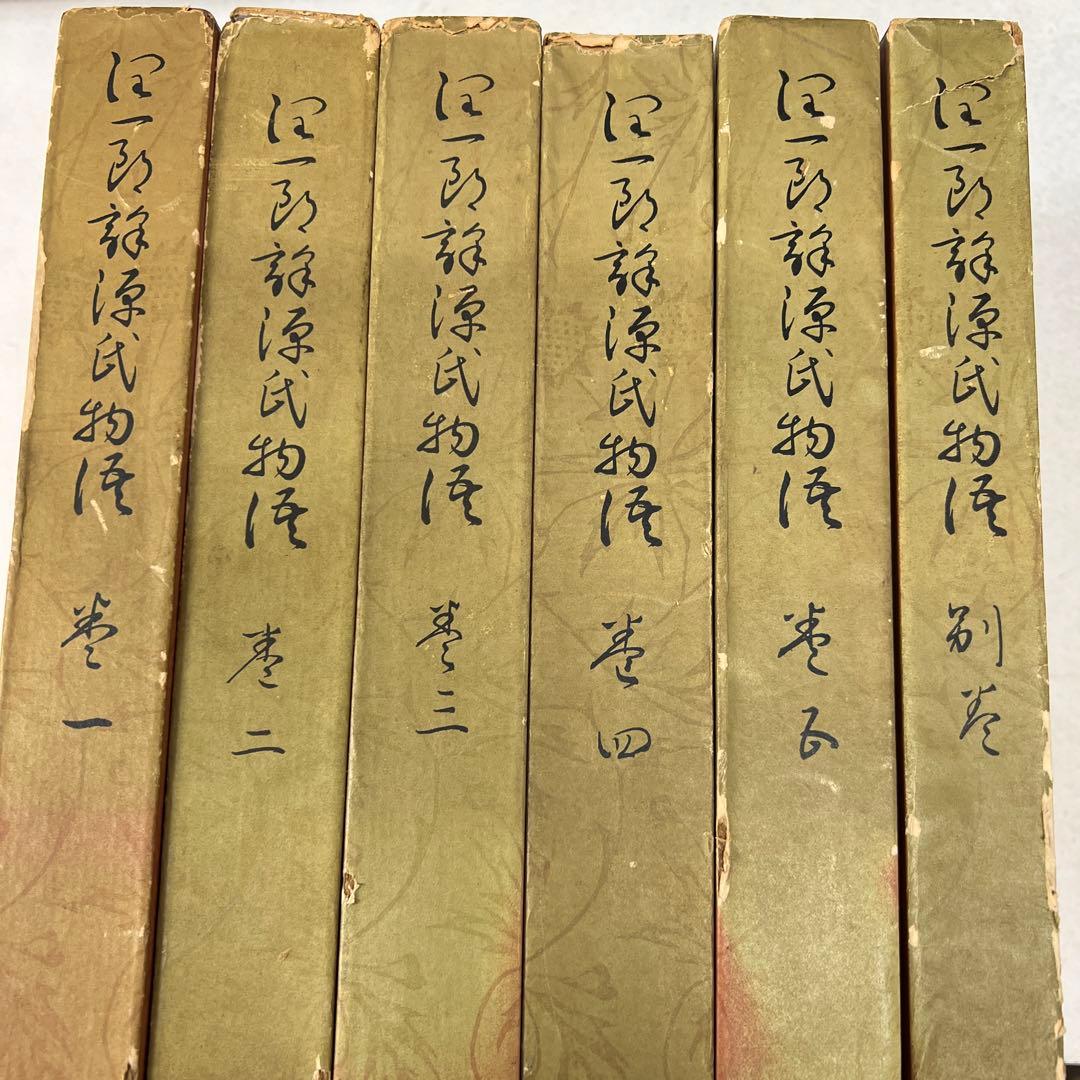 潤一郎譯源氏物語 卷一
潤一郎譯源氏物語 卷二
潤一郎譯源氏物語 卷三
潤一郎譯源氏物語 卷四
潤一郎譯源氏物語 卷五
潤一郎譯源氏物語 別卷